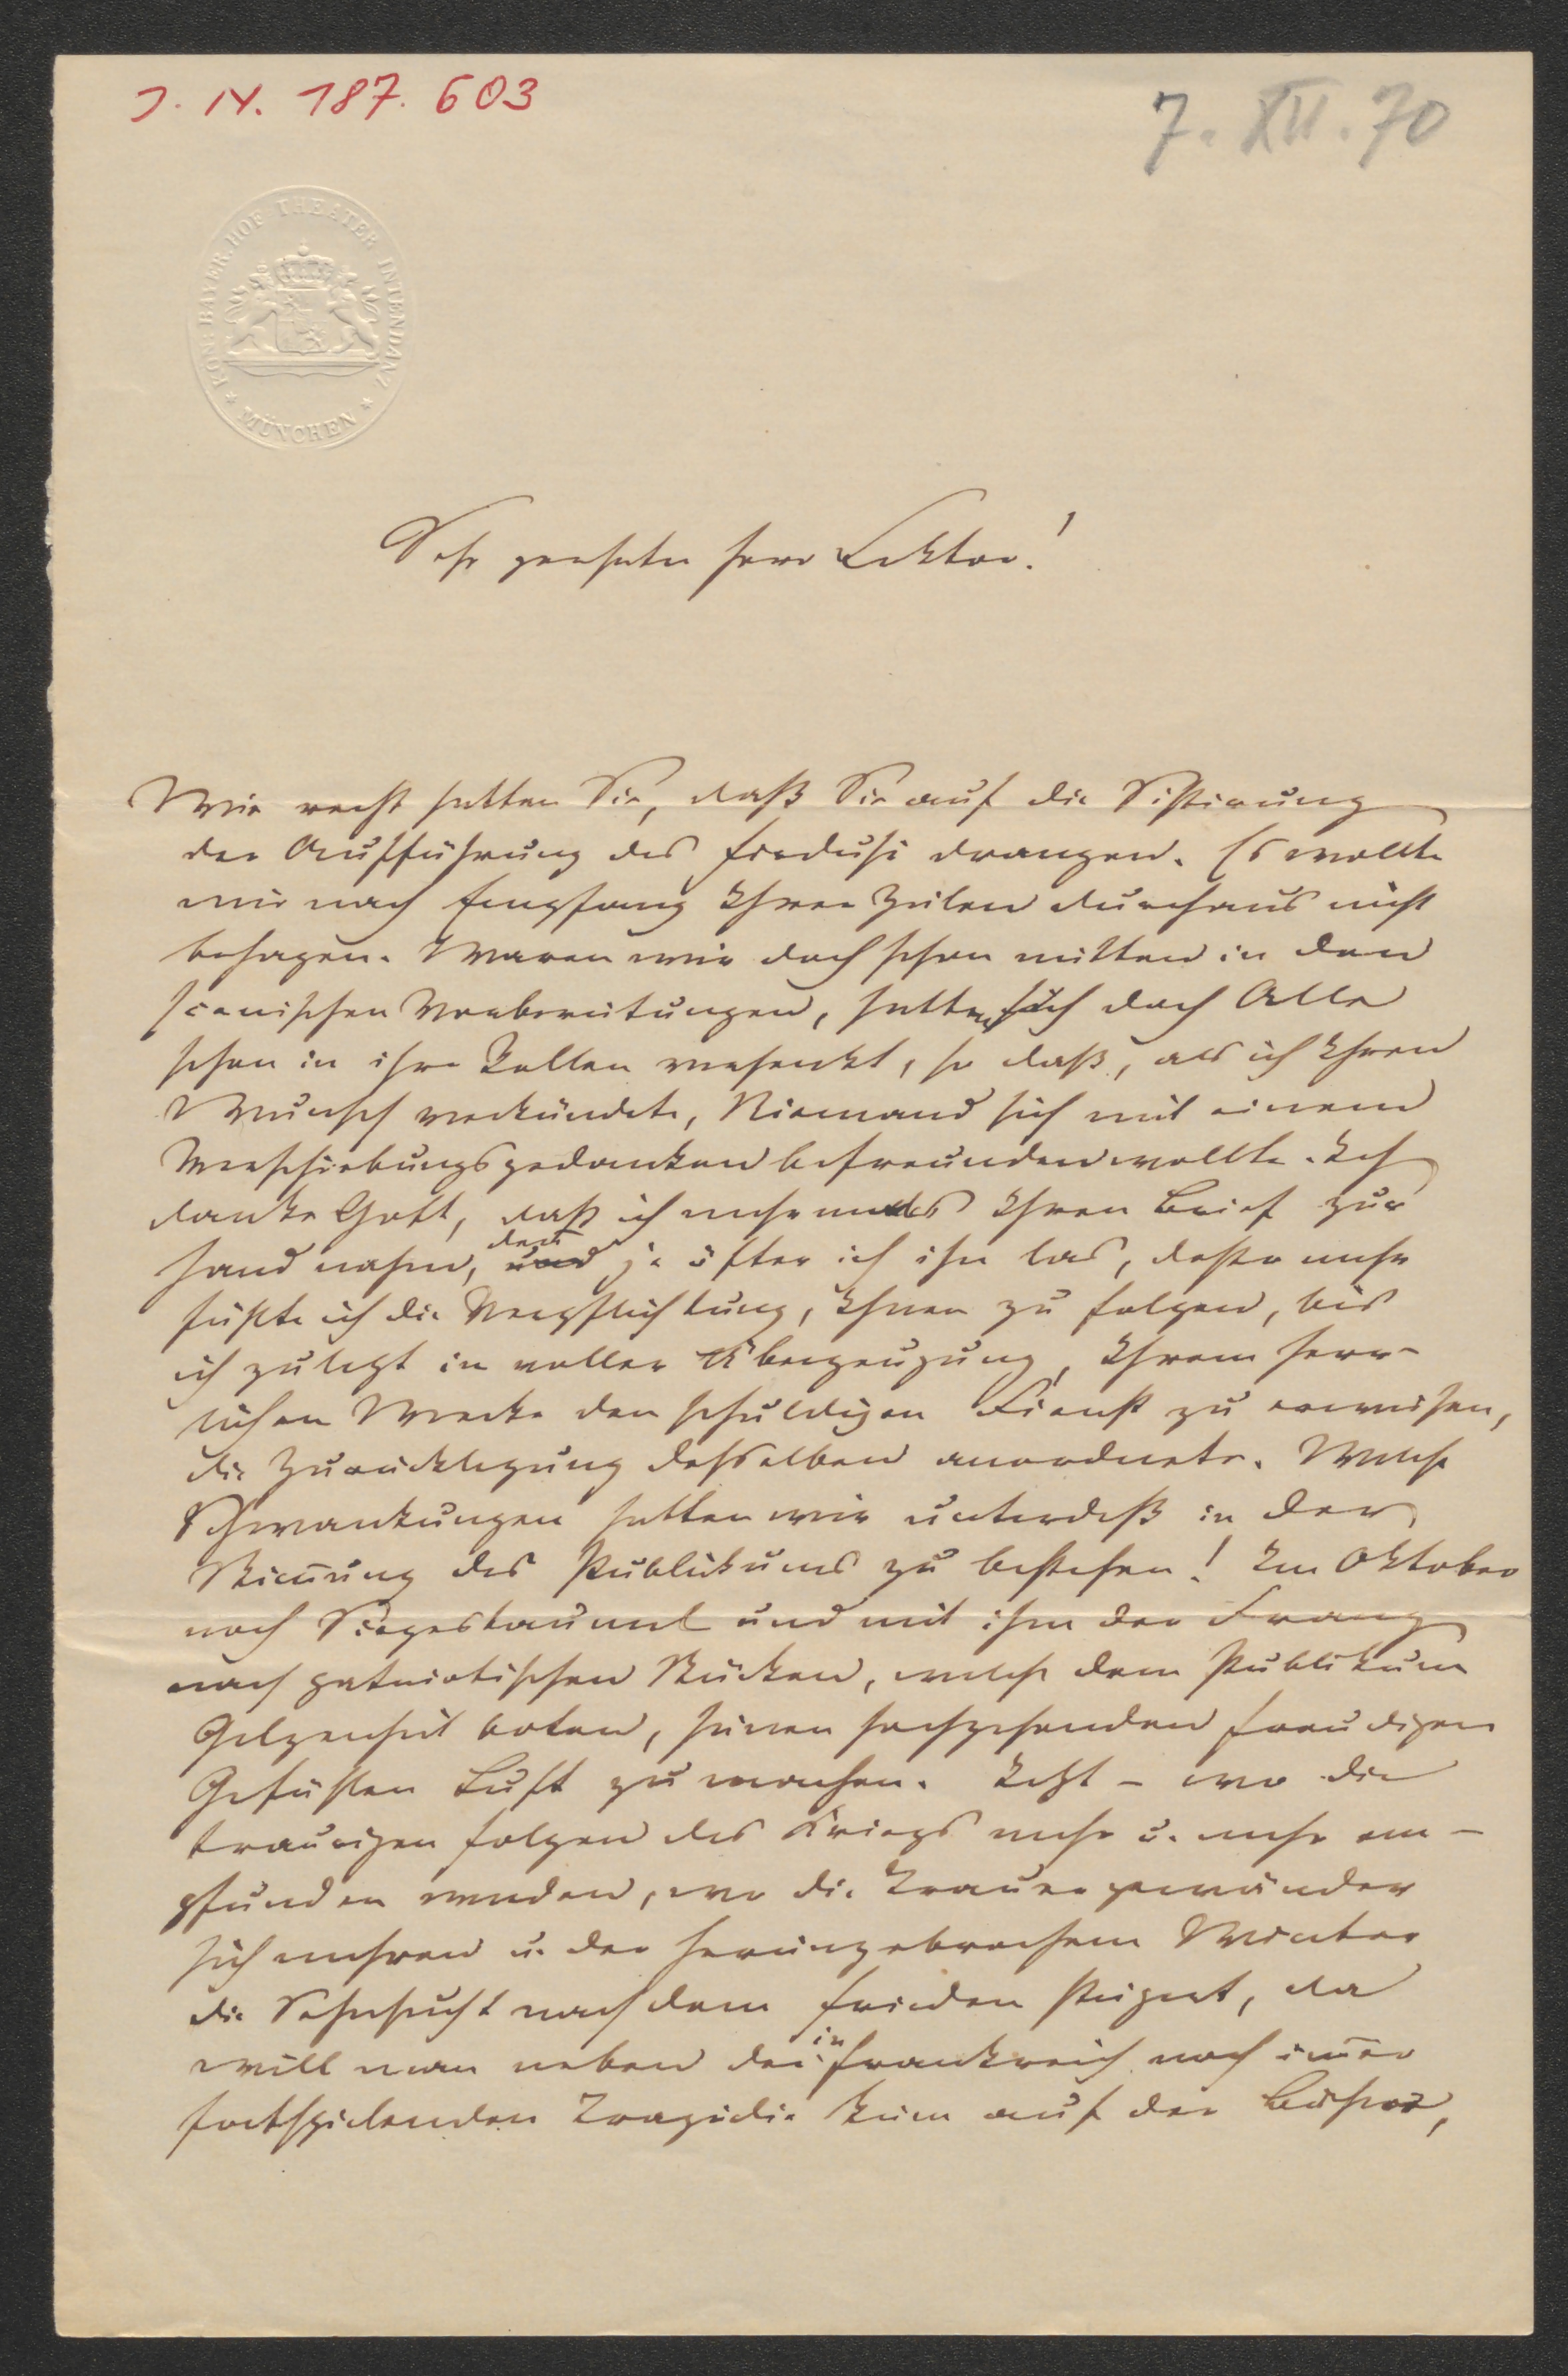 J. N. 187. 603
7. XII. 70
KÖN: BAYER. HOF THEATER INTENDANZ
* MÜNCHEN *
Sehr geehrter Herr Doktor!
Wie recht hatten Sie, daß Sie auf die Sistirung
der Aufführung des Firdusi drangen. Es wollte
mir nach Empfang Ihrer Zeilen durchaus nicht
behagen. Waren wir doch schon mitten in den
scenischen Vorbereitungen, hatten sich doch Alle
schon in ihre Rollen versenkt, so daß, als ich Ihren
Wunsch verkündete, Niemand sich mit einem
Verschiebungsgedanken befreunden wollte. Ich
danke Gott, daß ich mehrmals Ihren Brief zur
Hand nahm, denn je öfter ich ihn las, desto mehr
fühlte ich die Verpflichtung, Ihnen zu folgen, bis
ich zuletzt in voller Überzeugung, Ihrem herr-
lichen Werke den schuldigen Dienst zu erweisen,
die Zurücklegung desselben anordnete. Welche
Schwankungen hatten wir unterdeß in der
Stim̄ung des Publikums zu bestehen! Im Oktober
noch Siegestaumel und mit ihm der Drang
nach patriotischen Stücken, welche dem Publikum
Gelegenheit boten, seinen hochgehenden freudigen
Gefühlen Luft zu machen. Jetzt – wo die
traurigen Folgen des Kriegs mehr u. mehr em-
pfunden werden, wo die Trauergewänder
sich mehren u. der hereingebrochene Winter
die Sehnsucht nach dem Frieden steigert, da
will man neben der in Frankreich noch im̄er
fortspielenden Tragödie kein auf der Bühne,